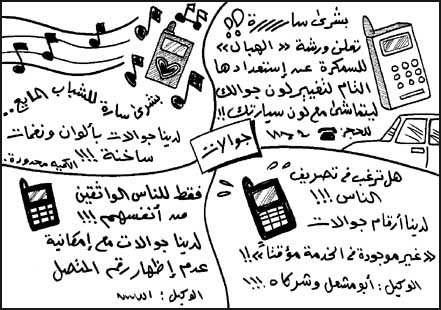 بشرى سارة !!
تعلن ورشة « الهبال »
للسمكرة عن إستعدادها
التام لتغيير لون جوالك
ليتماشى مع لون سيارتك !!
للحجز: ☎
بشرى سارة للشباب الهايج..
لدينا جوالات بألوان ونغمات
ساخنة !!!
الكمية محدودة.
جوالات
هل ترغب في تصريف
الناس !!!
لدينا أرقام جوالات
«غير موجودة في الخدمة مؤقتاً» !!
الوكيل: أبو مشعل وشركاه !!!
فقط للناس الواثقين
من أنفسهم !!!
لدينا جوالات مع إمكانية
عدم إظهار رقم المتصل
الوكيل: